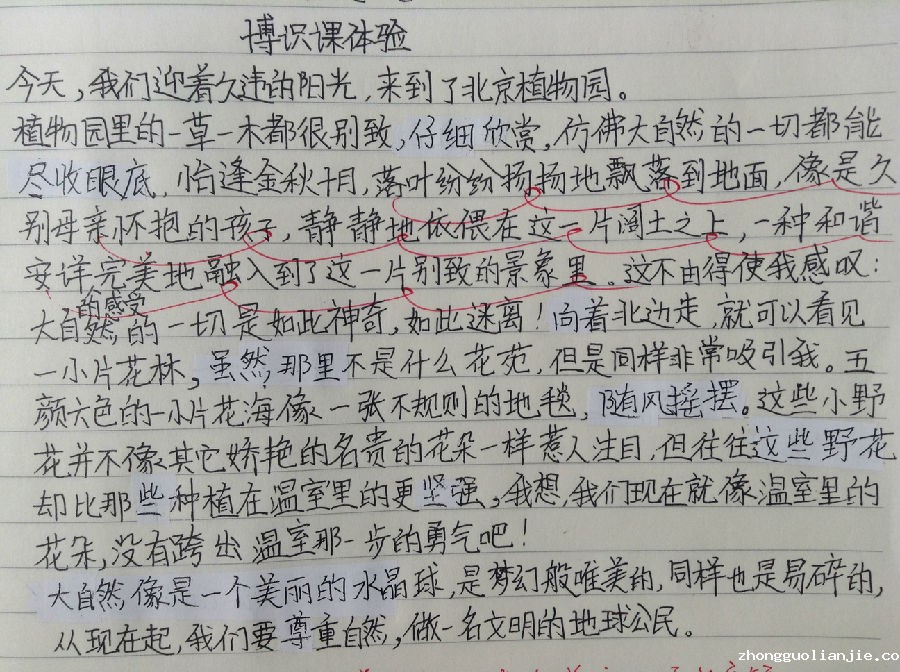 博识课体验
今天，我们迎着久违的阳光，来到了北京植物园。
植物园里的一草一木都很别致，仔细欣赏，仿佛大自然的一切都能
尽收眼底，恰逢金秋十月，落叶纷纷扬扬地飘落到地面，像是久
别母亲怀抱的孩子，静静地依偎在这一片阔土之上，一种和谐
安详完美地融入到了这一片别致的景象里。这不由得使我感叹：
的感受
大自然的一切是如此神奇，如此迷离！向着北边走，就可以看见
一小片花林，虽然那里不是什么花苑，但是同样非常吸引我。五
颜六色的一小片花海像一张不规则的地毯，随风摇摆。这些小野
花并不像其它娇艳的名贵的花朵一样惹人注目，但往往这些野花
却比那些种植在温室里的更坚强，我想，我们现在就像温室里的
花朵，没有跨出温室那一步的勇气吧！
大自然像是一个美丽的水晶球，是梦幻般唯美的，同样也是易碎的，
从现在起，我们要尊重自然，做一名文明的地球公民。
zhongguolianjie.co